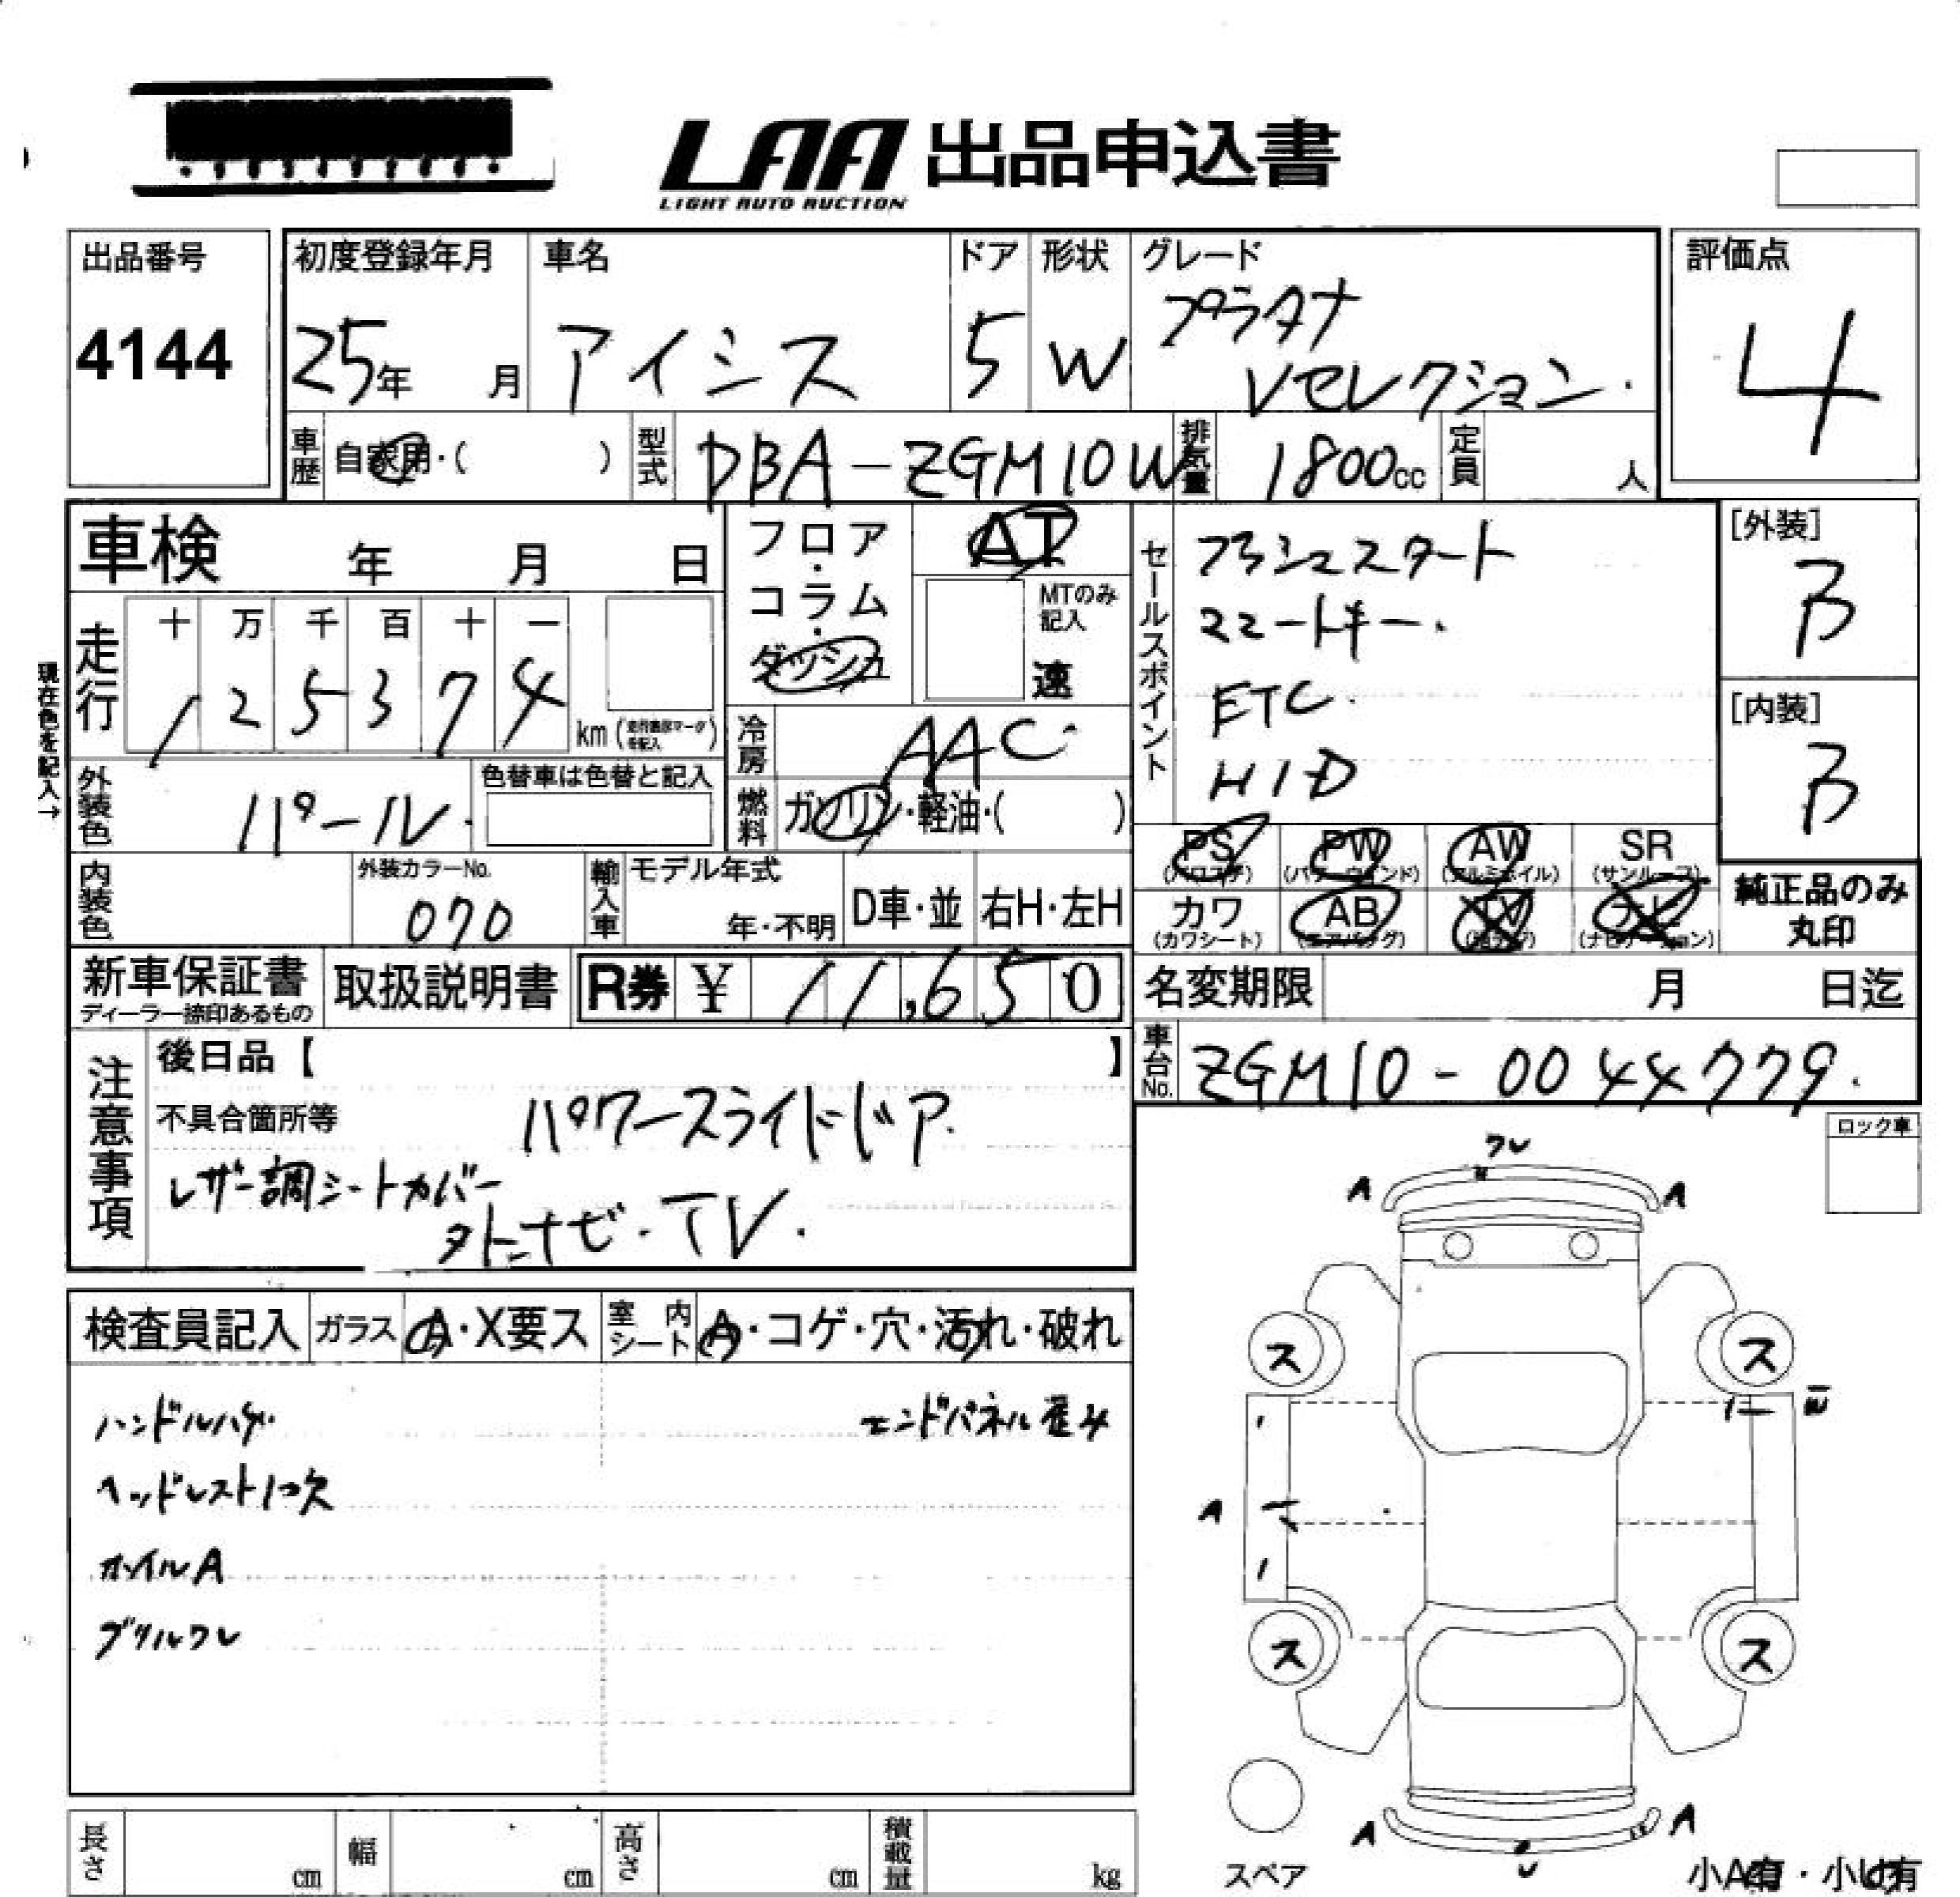 LAA 出品申込書
LIGHT AUTO AUCTION
出品番号
4144
初度登録年月
25年 月
車名
アイシス
ドア
5
形状
W
グレード
プラタナ
Vセレクション.
評価点
4
車歴
自家用・( )
型式
DBA-ZGM10W
排気量
1800cc
定員
人
車検 年 月 日
フロア・コラム・ダッシュ
AT
MTのみ記入
速
セールスポイント
プッシュスタート
スマートキー.
ETC.
HID
[外装]
B
[内装]
B
現在色を記入→
走行
十 万 千 百 十 一
1 2 5 3 7 4
km
冷房
AAC
外装色
パール.
色替車は色替と記入
燃料
ガソリン・軽油・( )
PS (パワステ)
PW (パワーウインド)
AW (アルミホイル)
SR (サンルーフ)
カワ (カワシート)
AB (エアバッグ)
TV
ナビ (ナビゲーション)
純正品のみ
丸印
内装色
外装カラーNo.
070
輸入車
モデル年式
年・不明
D車・並
右H・左H
新車保証書
ディーラー捺印あるもの
取扱説明書
R券 ¥ 11,650
名変期限 月 日迄
車台No.
ZGM10-0044779.
注意事項
後日品【 】
不具合箇所等
パワースライドドア.
レザー調シートカバー
外ナビ・TV.
ロック車
ワレ
A A
検査員記入
ガラス A・X要ス
室内シート A・コゲ・穴・汚れ・破れ
ハンドルハゲ
エンドパネル歪み
ヘッドレスト1コ欠
ホイルA
グリルワレ
ス ス
A
ス ス
A A
U
スペア
小A有・小U有
長さ cm
幅 cm
高さ cm
積載量 kg